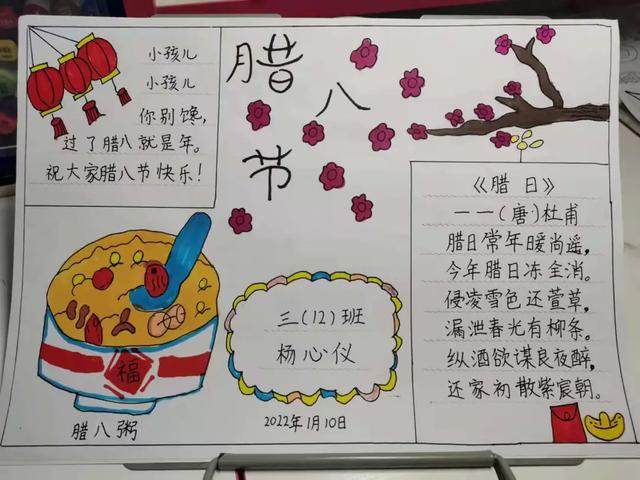 小孩儿
小孩儿
你别馋，
过了腊八就是年。
祝大家腊八节快乐！
腊
八
节
《腊日》
——（唐）杜甫
腊日常年暖尚遥，
今年腊日冻全消。
侵凌雪色还萱草，
漏泄春光有柳条。
纵酒欲谋良夜醉，
还家初散紫宸朝。
三（12）班
杨心仪
福
腊八粥
2022年1月10日